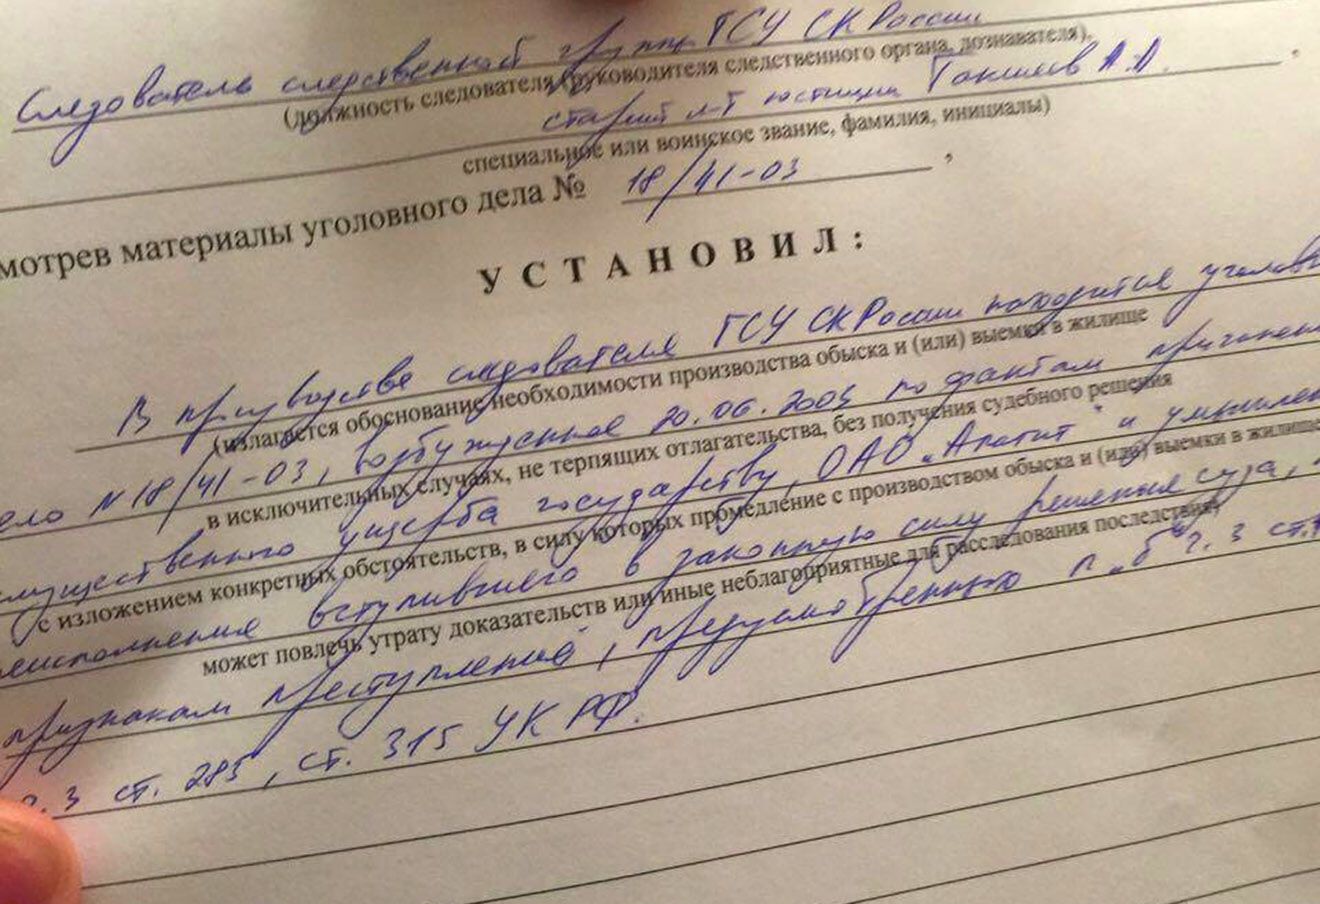 Следователь следственной группы ГСУ СК России
(должность следователя (руководителя следственного органа, дознавателя),
старший л-т юстиции А.А.
специальное или воинское звание, фамилия, инициалы)
мотрев материалы уголовного дела № 18/41-03 ,
УСТАНОВИЛ:
В производстве следователя ГСУ СК России находится уголовн
(излагается обоснование необходимости производства обыска и (или) выемки в жилище
ело N 18/41-03, возбужденное 20.06.2003 по фактам причинен
в исключительных случаях, не терпящих отлагательства, без получения судебного решения
мущественного ущерба государству, ОАО „Апатит" и умышлен
с изложением конкретных обстоятельств, в силу которых промедление с производством обыска и (или) выемки в жилище
неисполнения вступившего в законную силу решения суда,
может повлечь утрату доказательств или иные неблагоприятные для расследования последствия)
признакам преступлений, предусмотренных п. „б" ч. 3 ст.
ч. 3 ст. 285, ст. 315 УК РФ.